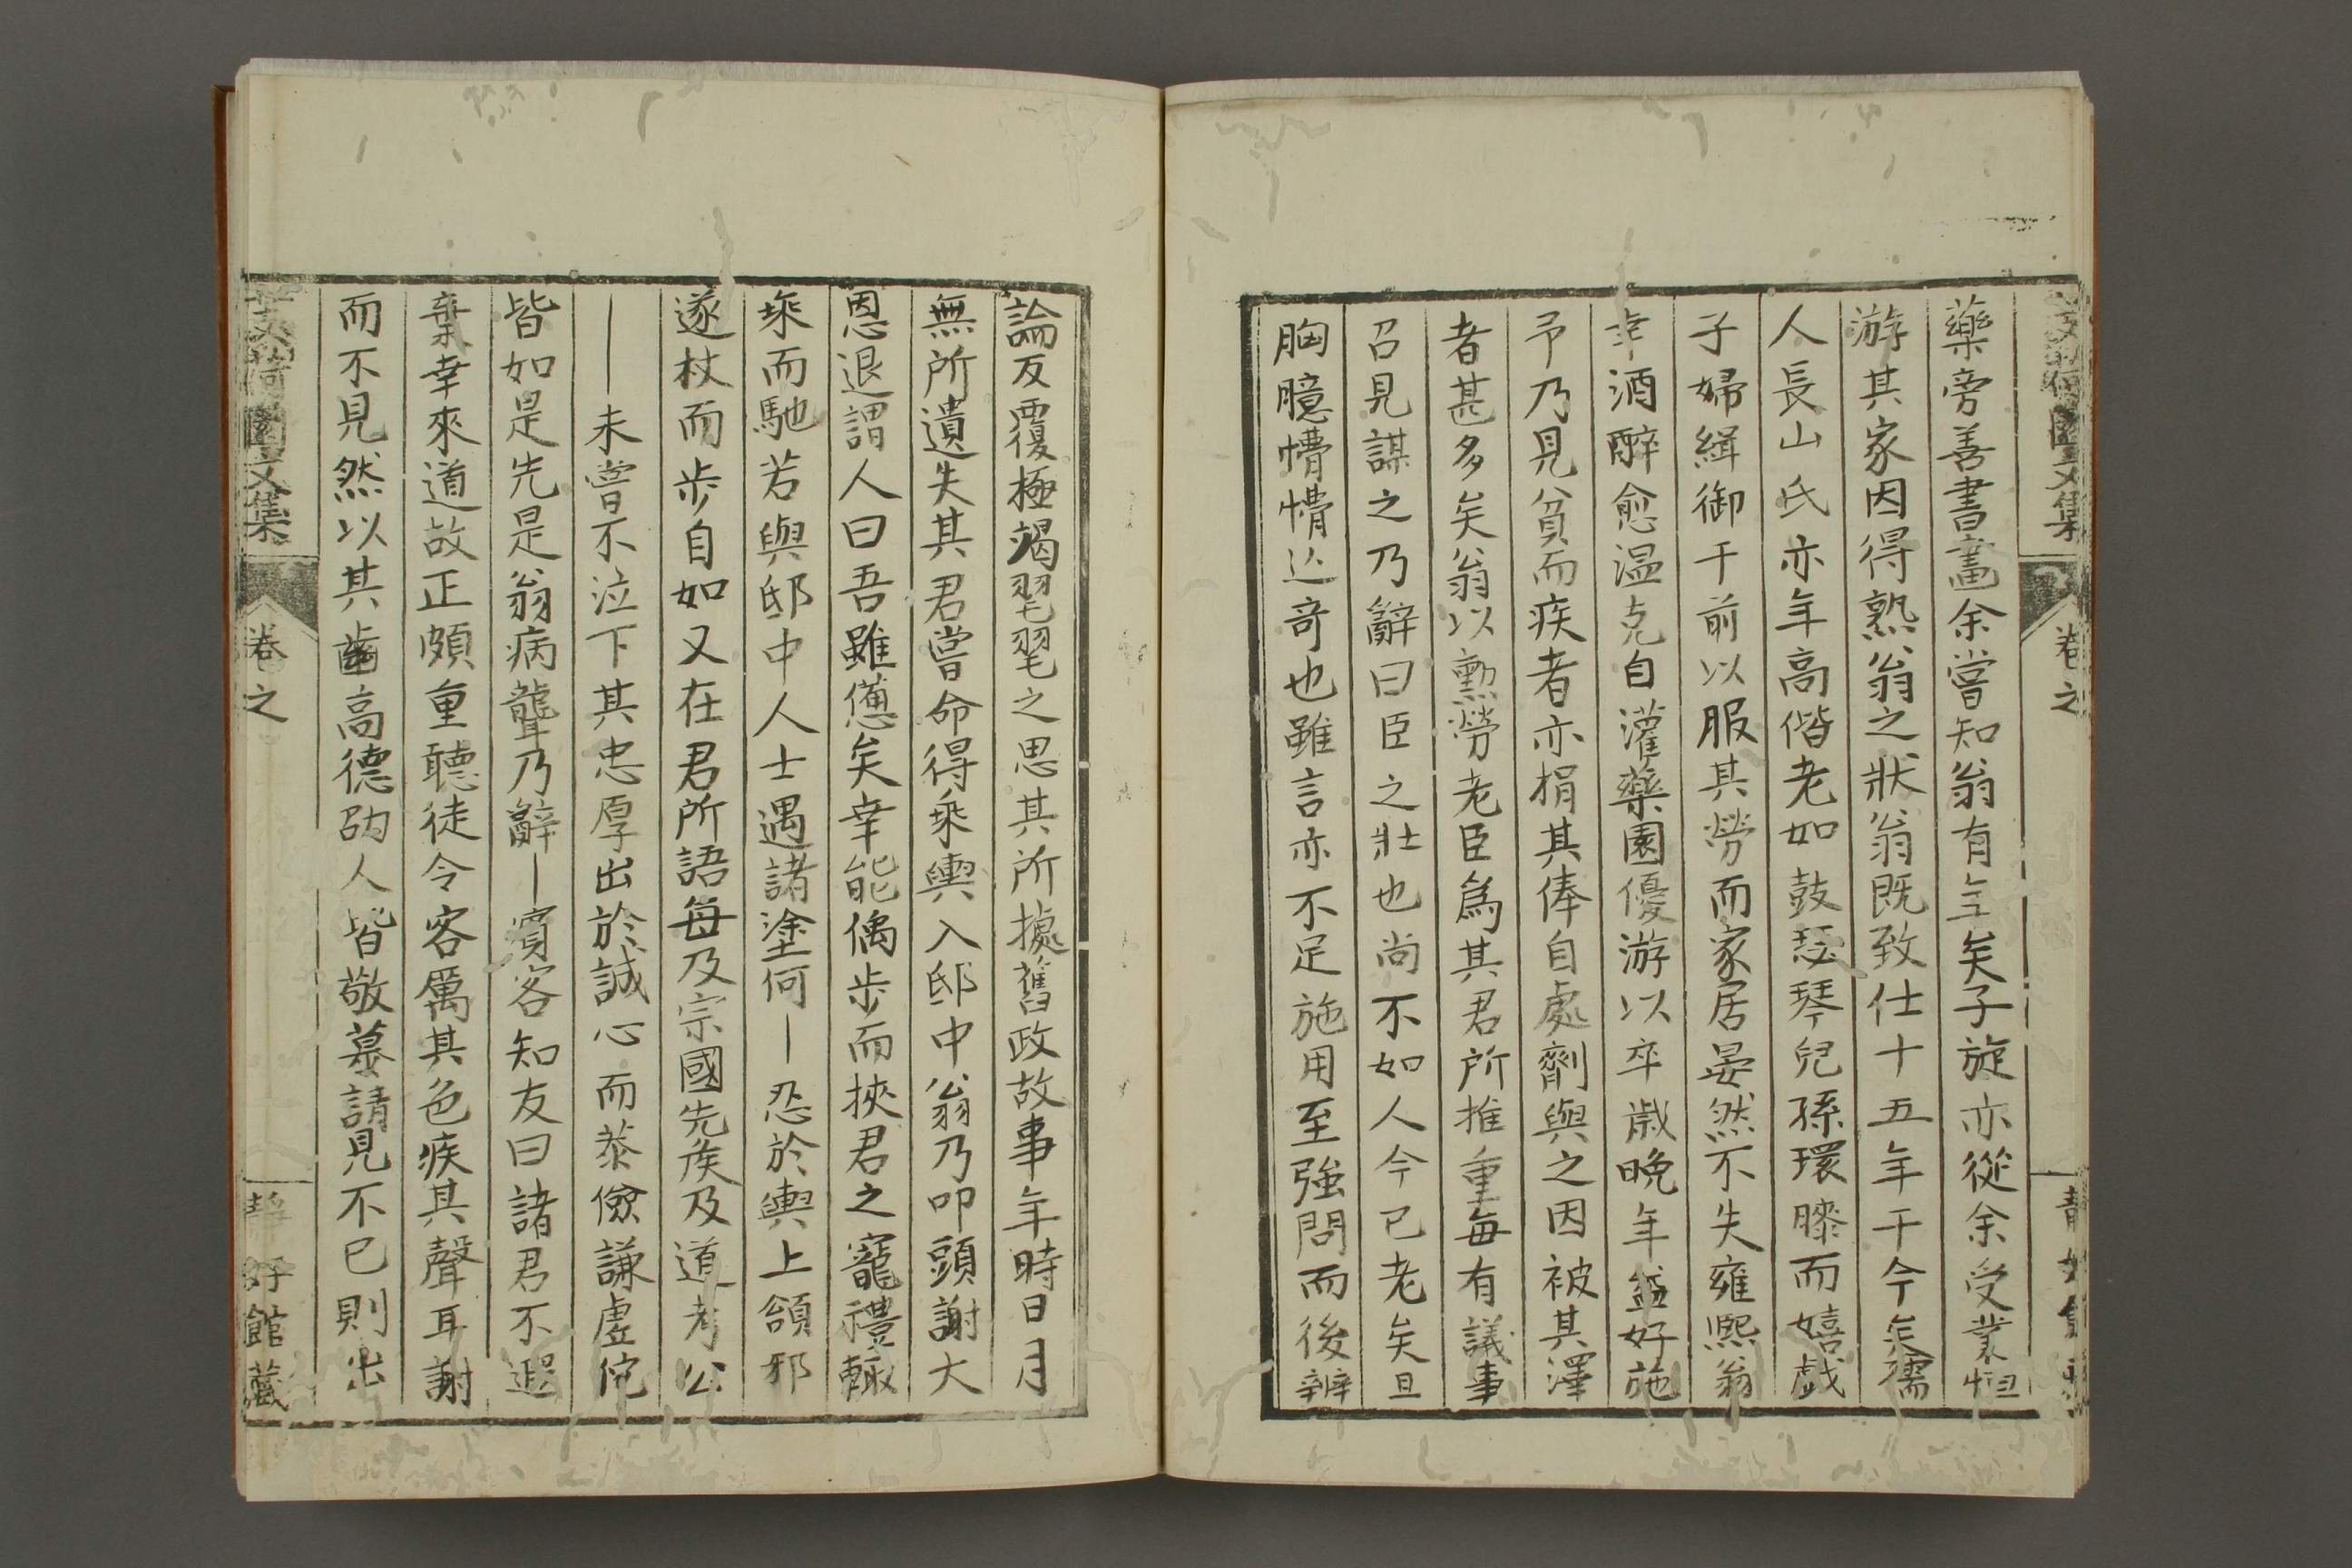 藥旁善書畫余嘗知翁有年矣子旋亦從余受業恒
游其家因得熟翁之狀翁既致仕十五年于今矣孺
人長山氏亦年高偕老如鼓瑟琴兒孫環膝而嬉戲
子婦緝御于前以服其勞而家居晏然不失雍熙翁
幸酒醉愈温克自灌藥園優游以卒歳晩年益好施
予乃見貧而疾者亦捐其俸自處劑與之因被其澤
者甚多矣翁以勲勞老臣爲其君所推重每有議事
召見謀之乃辭曰臣之壯也尚不如人今已老矣且
胸臆懵懵亾奇也雖言亦不足施用至強問而後辨
論反覆極竭毣毣之思其所據舊政故事年時日月
無所遺失其君嘗命得乘輿入邸中翁乃叩頭謝大
恩退謂人曰吾雖憊矣幸能偊步而挾君之寵禮輙
乘而馳若與邸中人士遇諸塗何〡忍於輿上頷邪
遂杖而步自如又在君所語每及宗國先侯及道考公
〡〡未嘗不泣下其忠厚出於誠心而恭儉謙虛佗
皆如是先是翁病聾乃辭〡賓客知友曰諸君不遐
棄幸來道故正頗重聽徒令客厲其色疾其聲耳謝
而不見然以其齒高德劭人皆敬慕請見不已則出
芰荷園文集 卷之 靜好館藏